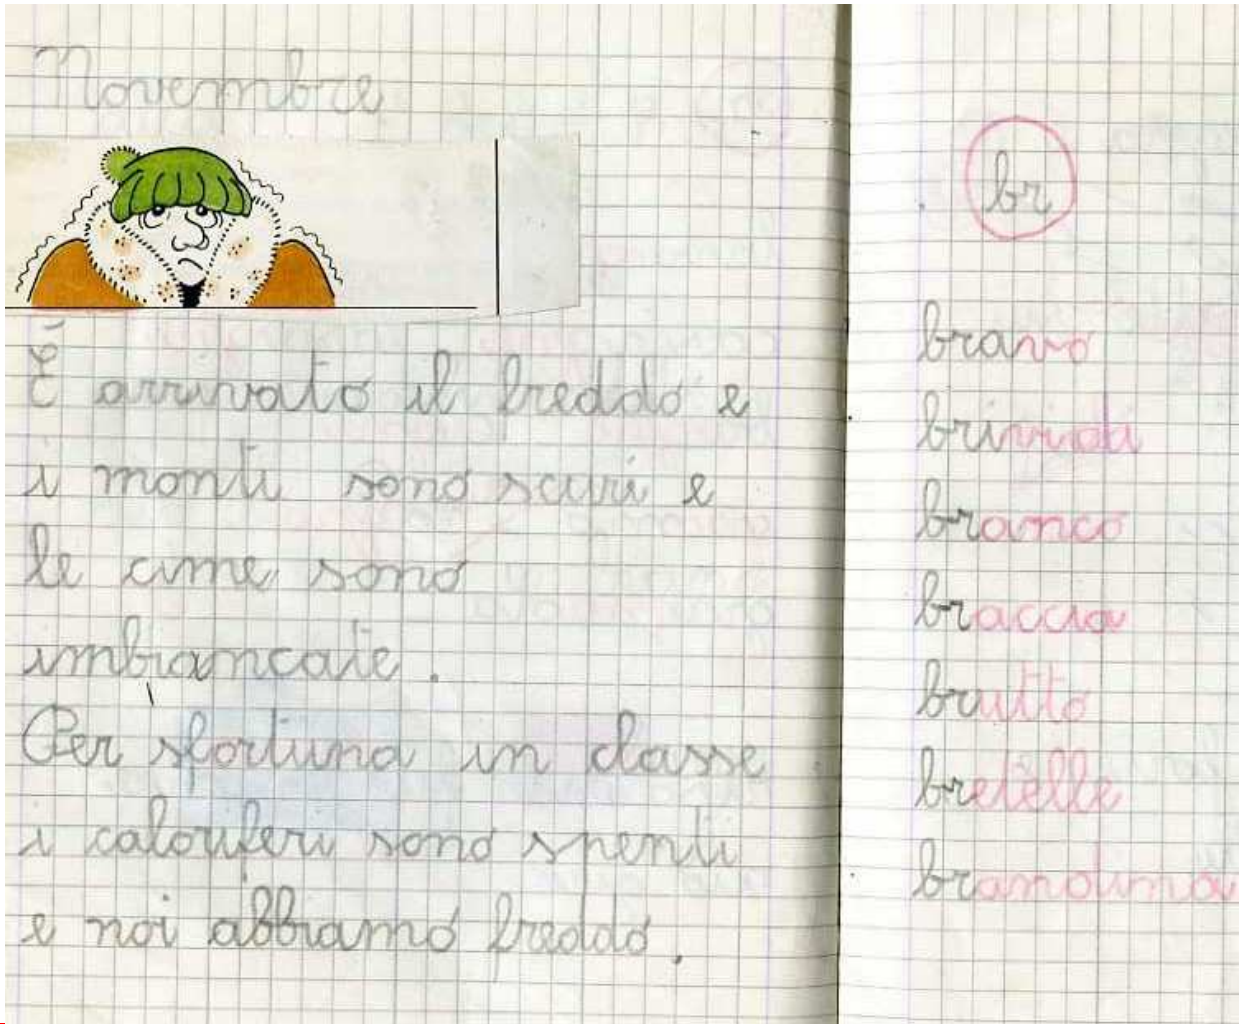 Novembre
È arrivato il freddo e
i monti sono scuri e
le cime sono
imbiancate.
Per sfortuna in classe
i caloriferi sono spenti
e noi abbiamo freddo.
br
bravo
brividi
branco
braccia
brutto
bretelle
brandina